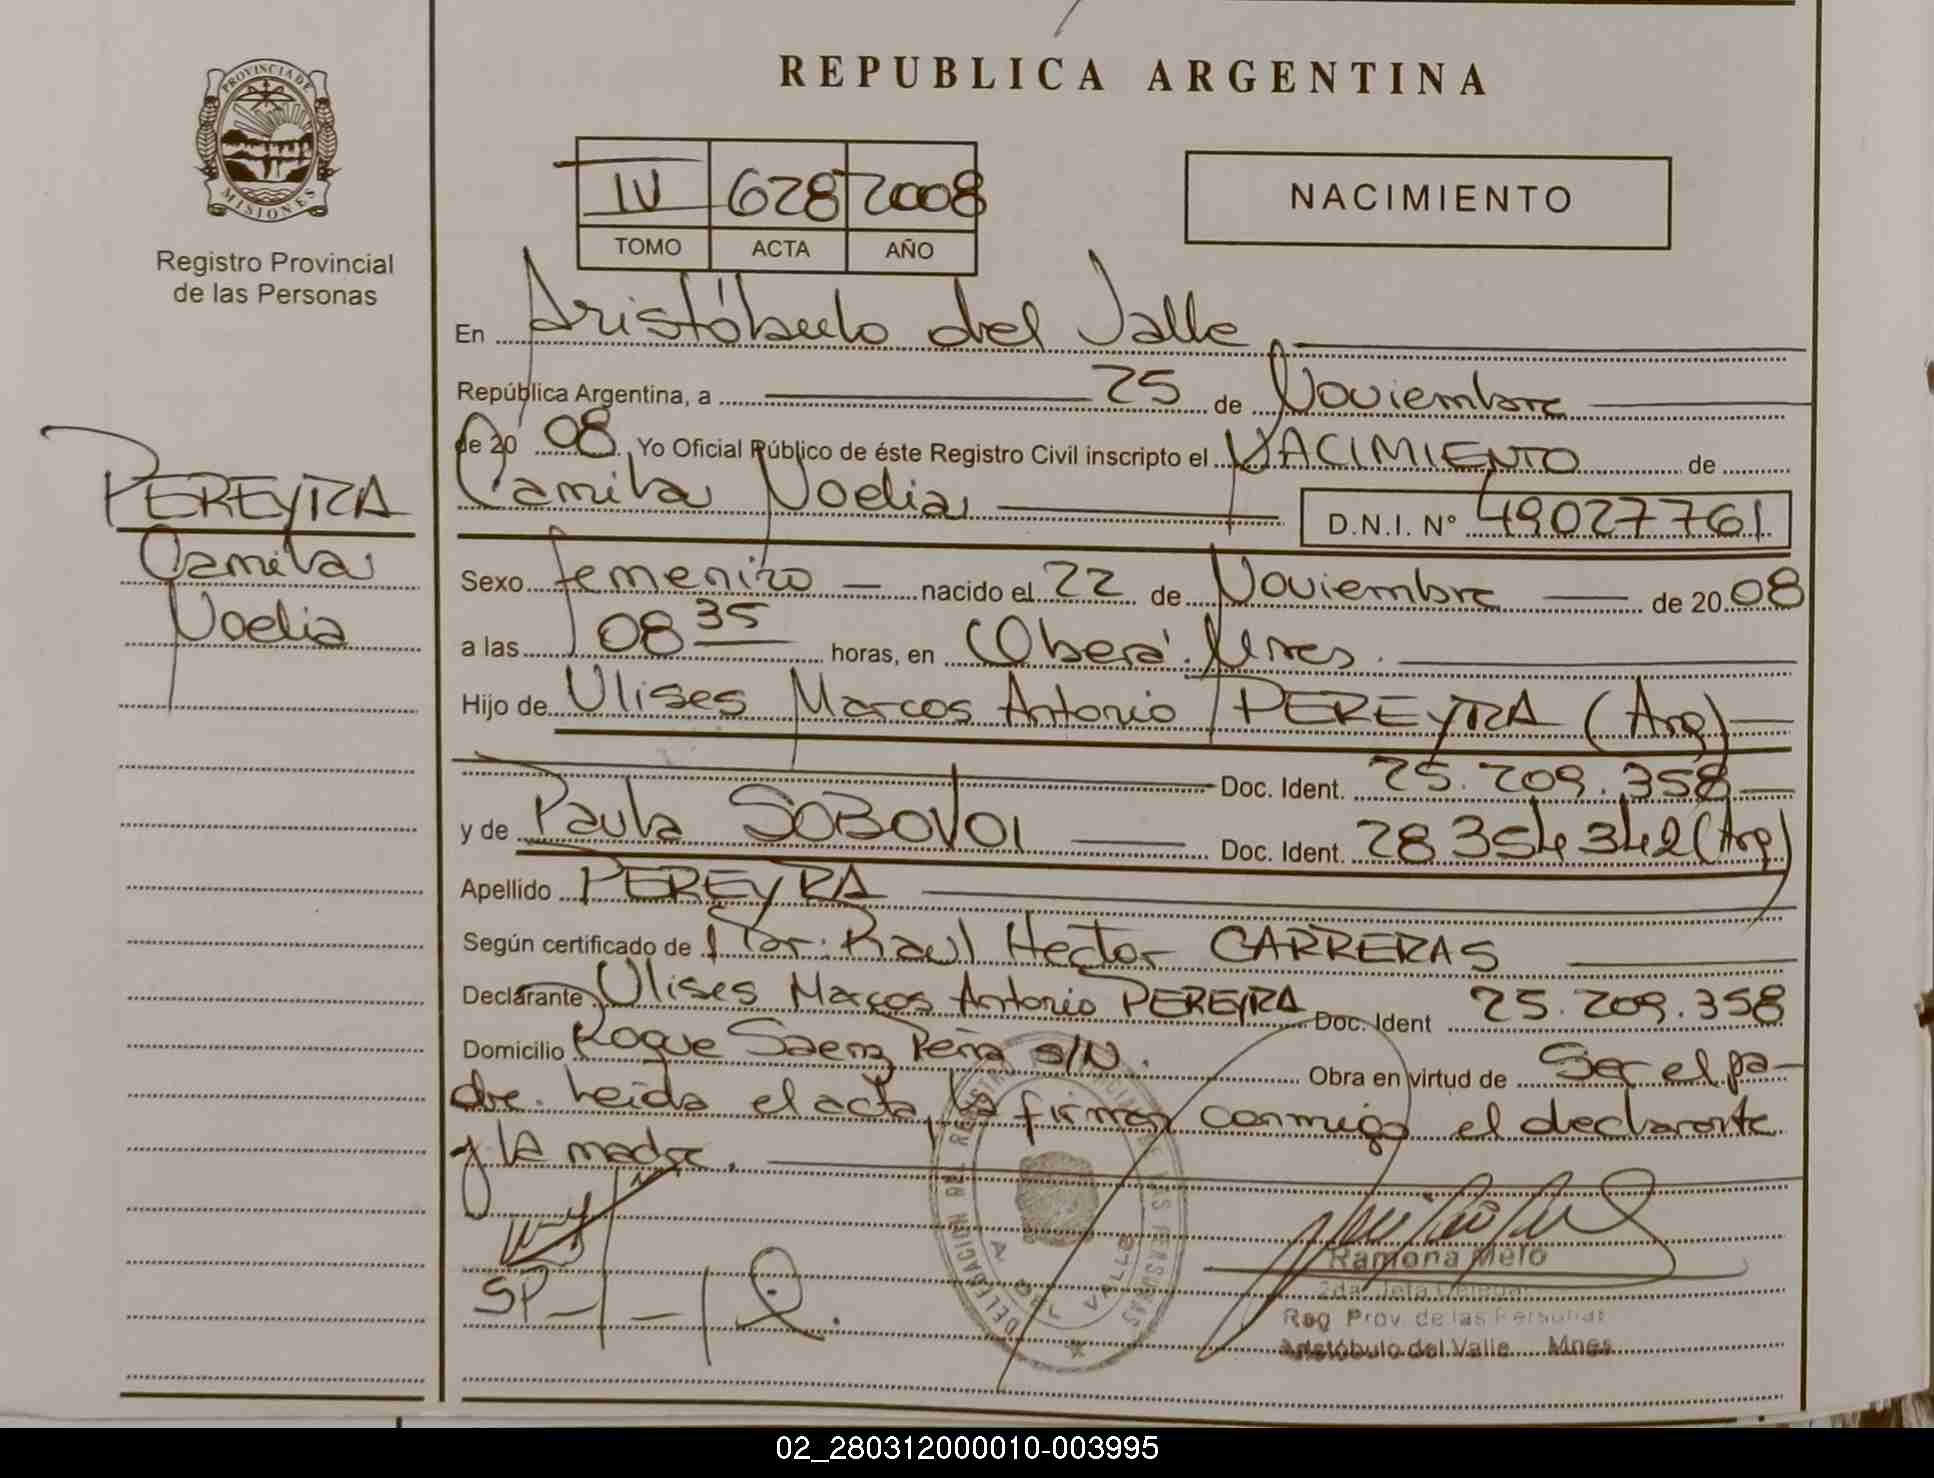 REPUBLICA ARGENTINA
PROVINCIA DE
MISIONES
Registro Provincial
de las Personas
IV 628 2008
TOMO ACTA AÑO
NACIMIENTO
PEREYRA
Camila
Noelia
En Aristóbulo del Valle
República Argentina, a 25 de Noviembre
de 20 08. Yo Oficial Público de éste Registro Civil inscripto el NACIMIENTO de
Camila Noelia D.N.I. Nº 49027761
Sexo femenino nacido el 22 de Noviembre de 20 08
a las 08 35 horas, en Oberá. Mnes.
Hijo de Ulises Marcos Antonio PEREYRA (Arg)
Doc. Ident. 25.209.358
y de Paula SOBOVOI Doc. Ident. 28354342 (Arg)
Apellido PEREYRA
Según certificado de Dr. Raul Hector CARRERAS
Declarante Ulises Marcos Antonio PEREYRA Doc. Ident 25.209.358
Domicilio Roque Saenz Peña S/N. Obra en virtud de Ser el pa-
dre. Leida el acta, la firman conmigo el declarante
y la madre.
DELEGACION DEL REGISTRO PROVINCIAL DE LAS PERSONAS
A. DEL VALLE
Ramona Melo
2da. Jefa Delegac.
Reg Prov. de las Personas
Aristóbulo del Valle Mnes
02_280312000010-003995